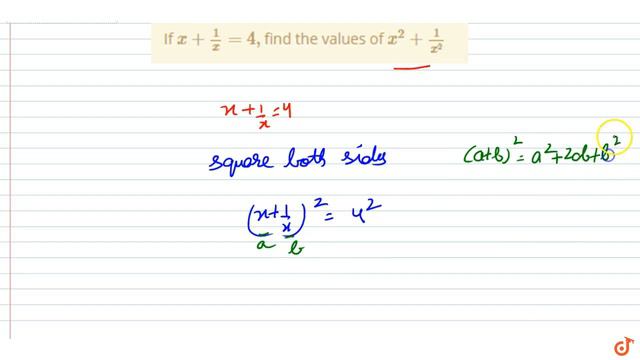 If x + 1/x = 4, find the values of x² + 1/x²
x + 1/x = 4
square both sides
(a+b)² = a² + 2ab + b²
(x + 1/x)² = 4²
a b